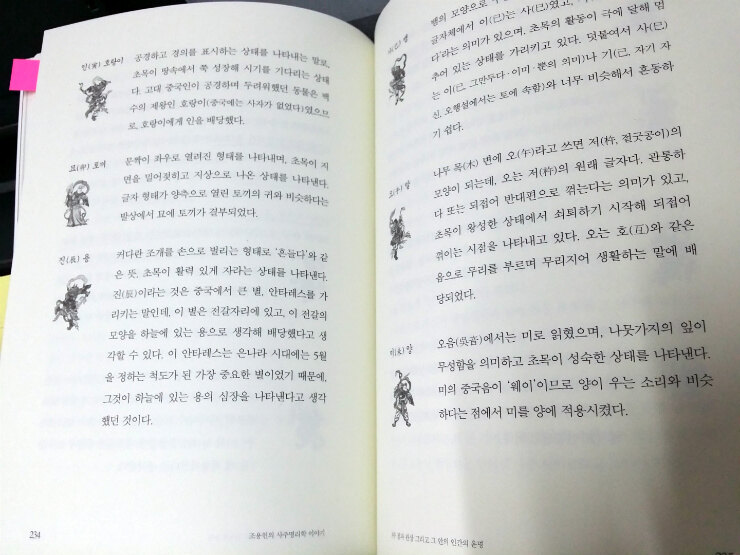 인(寅) 호랑이
공경하고 경의를 표시하는 상태를 나타내는 말로,
초목이 땅속에서 쭉 성장해 시기를 기다리는 상태
다. 고대 중국인이 공경하며 두려워했던 동물은 백
수의 제왕인 호랑이(중국에는 사자가 없었다)였으므
로, 호랑이에게 인을 배당했다.
묘(卯) 토끼
문짝이 좌우로 열려진 형태를 나타내며, 초목이 지
면을 밀어젖히고 지상으로 나온 상태를 나타낸다.
글자 형태가 양측으로 열린 토끼의 귀와 비슷하다는
발상에서 묘에 토끼가 결부되었다.
진(辰) 용
커다란 조개를 손으로 벌리는 형태로 '흔들다'와 같
은 뜻, 초목이 활력 있게 자라는 상태를 나타낸다.
진(辰)이라는 것은 중국에서 큰 별, 안타레스를 가
리키는 말인데, 이 별은 전갈자리에 있고, 이 전갈의
모양을 하늘에 있는 용으로 생각해 배당했다고 생
각할 수 있다. 이 안타레스는 은나라 시대에는 5월
을 정하는 척도가 된 가장 중요한 별이었기 때문에,
그것이 하늘에 있는 용의 심장을 나타낸다고 생각
했던 것이다.
234
조용헌의 사주명리학 이야기
사(巳) 뱀
뱀의 모양으로
글자체에서 이(已)는 사(巳)였고,
다'라는 의미가 있으며, 초목의 활동이 극에 달해 멈
추어 있는 상태를 가리키고 있다. 덧붙여서 사(巳)
는 이(已, 그만두다·이미·뿐의 의미)나 기(己, 자기 자
신, 오행설에서는 토에 속함)와 너무 비슷해서 혼동하
기 쉽다.
오(午) 말
나무 목(木) 변에 오(午)라고 쓰면 저(杵, 절굿공이)의
모양이 되는데, 오는 저(杵)의 원래 글자다. 관통하
다 또는 되접어 반대편으로 꺾는다는 의미가 있고,
초목이 왕성한 상태에서 쇠퇴하기 시작해 되접어
꺾이는 시점을 나타내고 있다. 오는 호(互)와 같은
음으로 무리를 부르며 무리지어 생활하는 말에 배
당되었다.
미(未) 양
오음(吳音)에서는 미로 읽혔으며, 나뭇가지의 잎이
무성함을 의미하고 초목이 성숙한 상태를 나타낸다.
미의 중국음이 '웨이'이므로 양이 우는 소리와 비슷
하다는 점에서 미를 양에 적용시켰다.
그리고 그 안의 인간의 운명